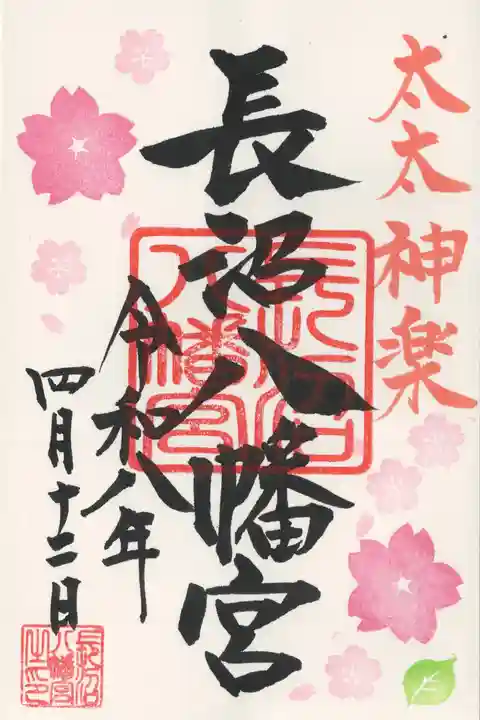 太太神楽
長沼八幡宮
令和八年
四月十二日
長沼
八幡宮
長沼
八幡宮
之印